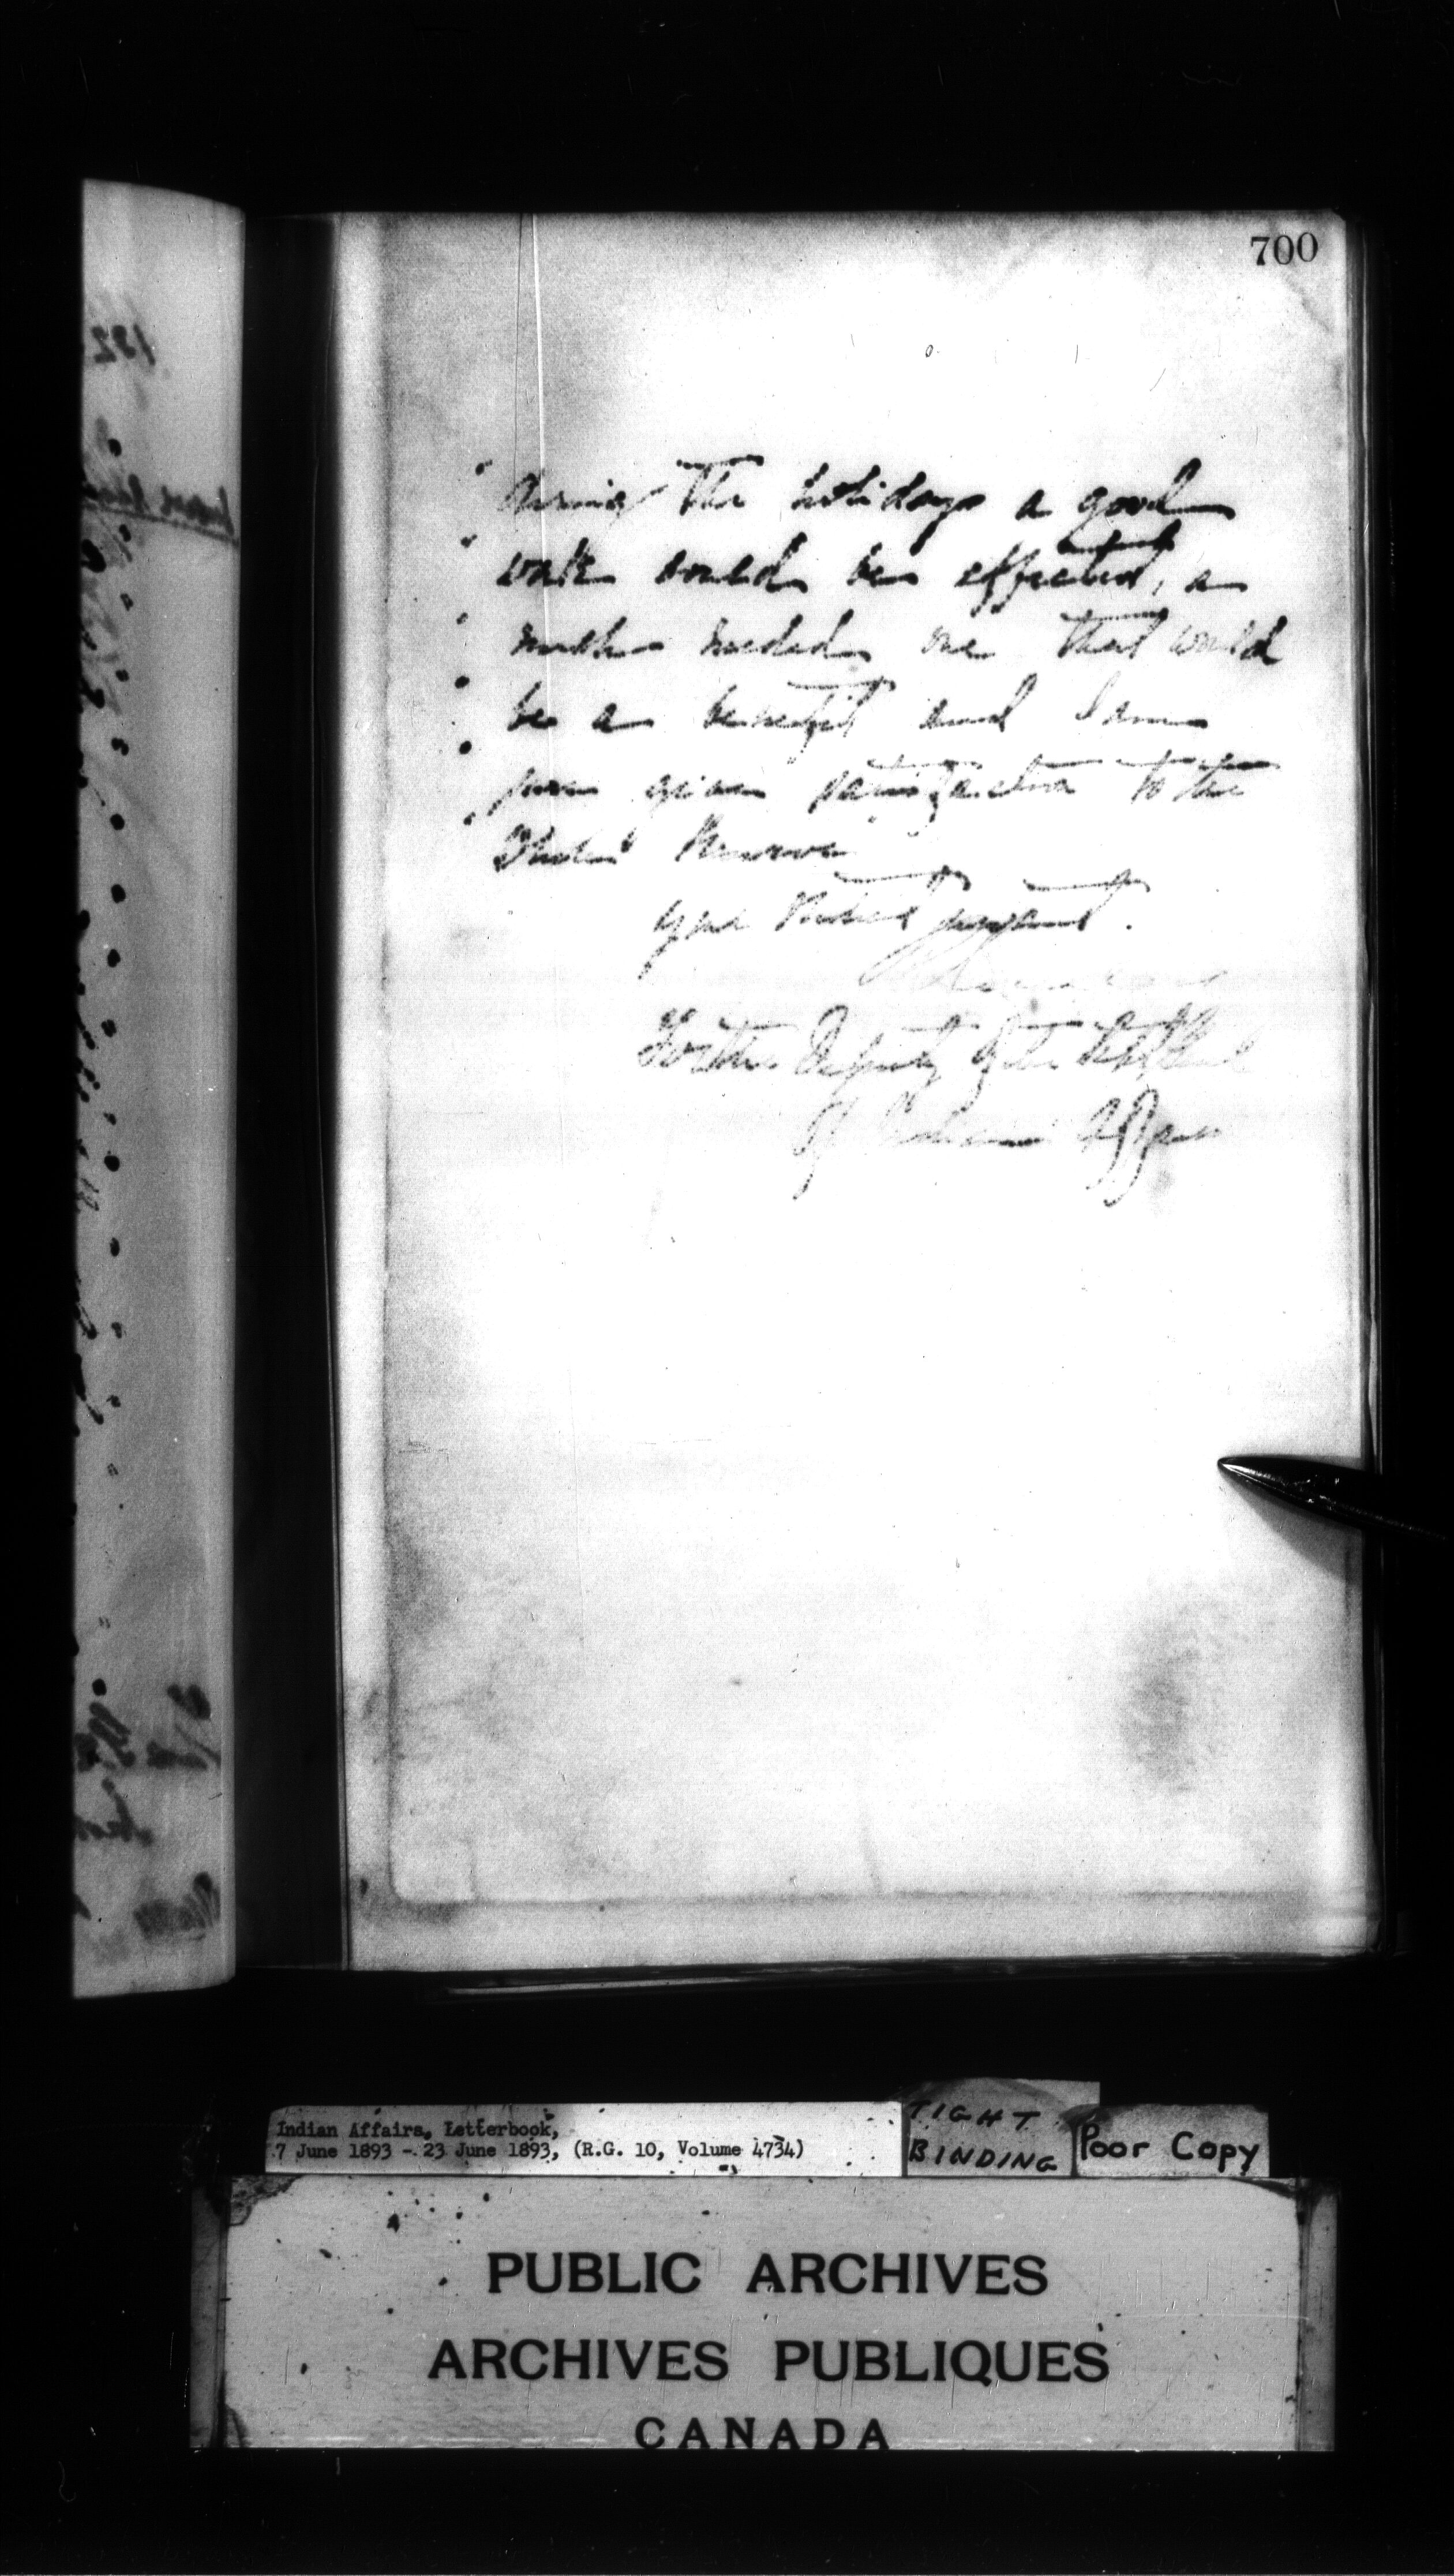 700
" during the holidays a good
" work could be effected, a
" much needed one that would
" be a benefit and I am
" sure given satisfaction to the
" whole Reserve
Your obedient servant.
For the Deputy of the Supt. Genl
of Indian Affairs
Indian Affairs, Letterbook,
7 June 1893 - 23 June 1893, (R.G. 10, Volume 4734)
TIGHT
BINDING
Poor Copy
PUBLIC ARCHIVES
ARCHIVES PUBLIQUES
CANADA